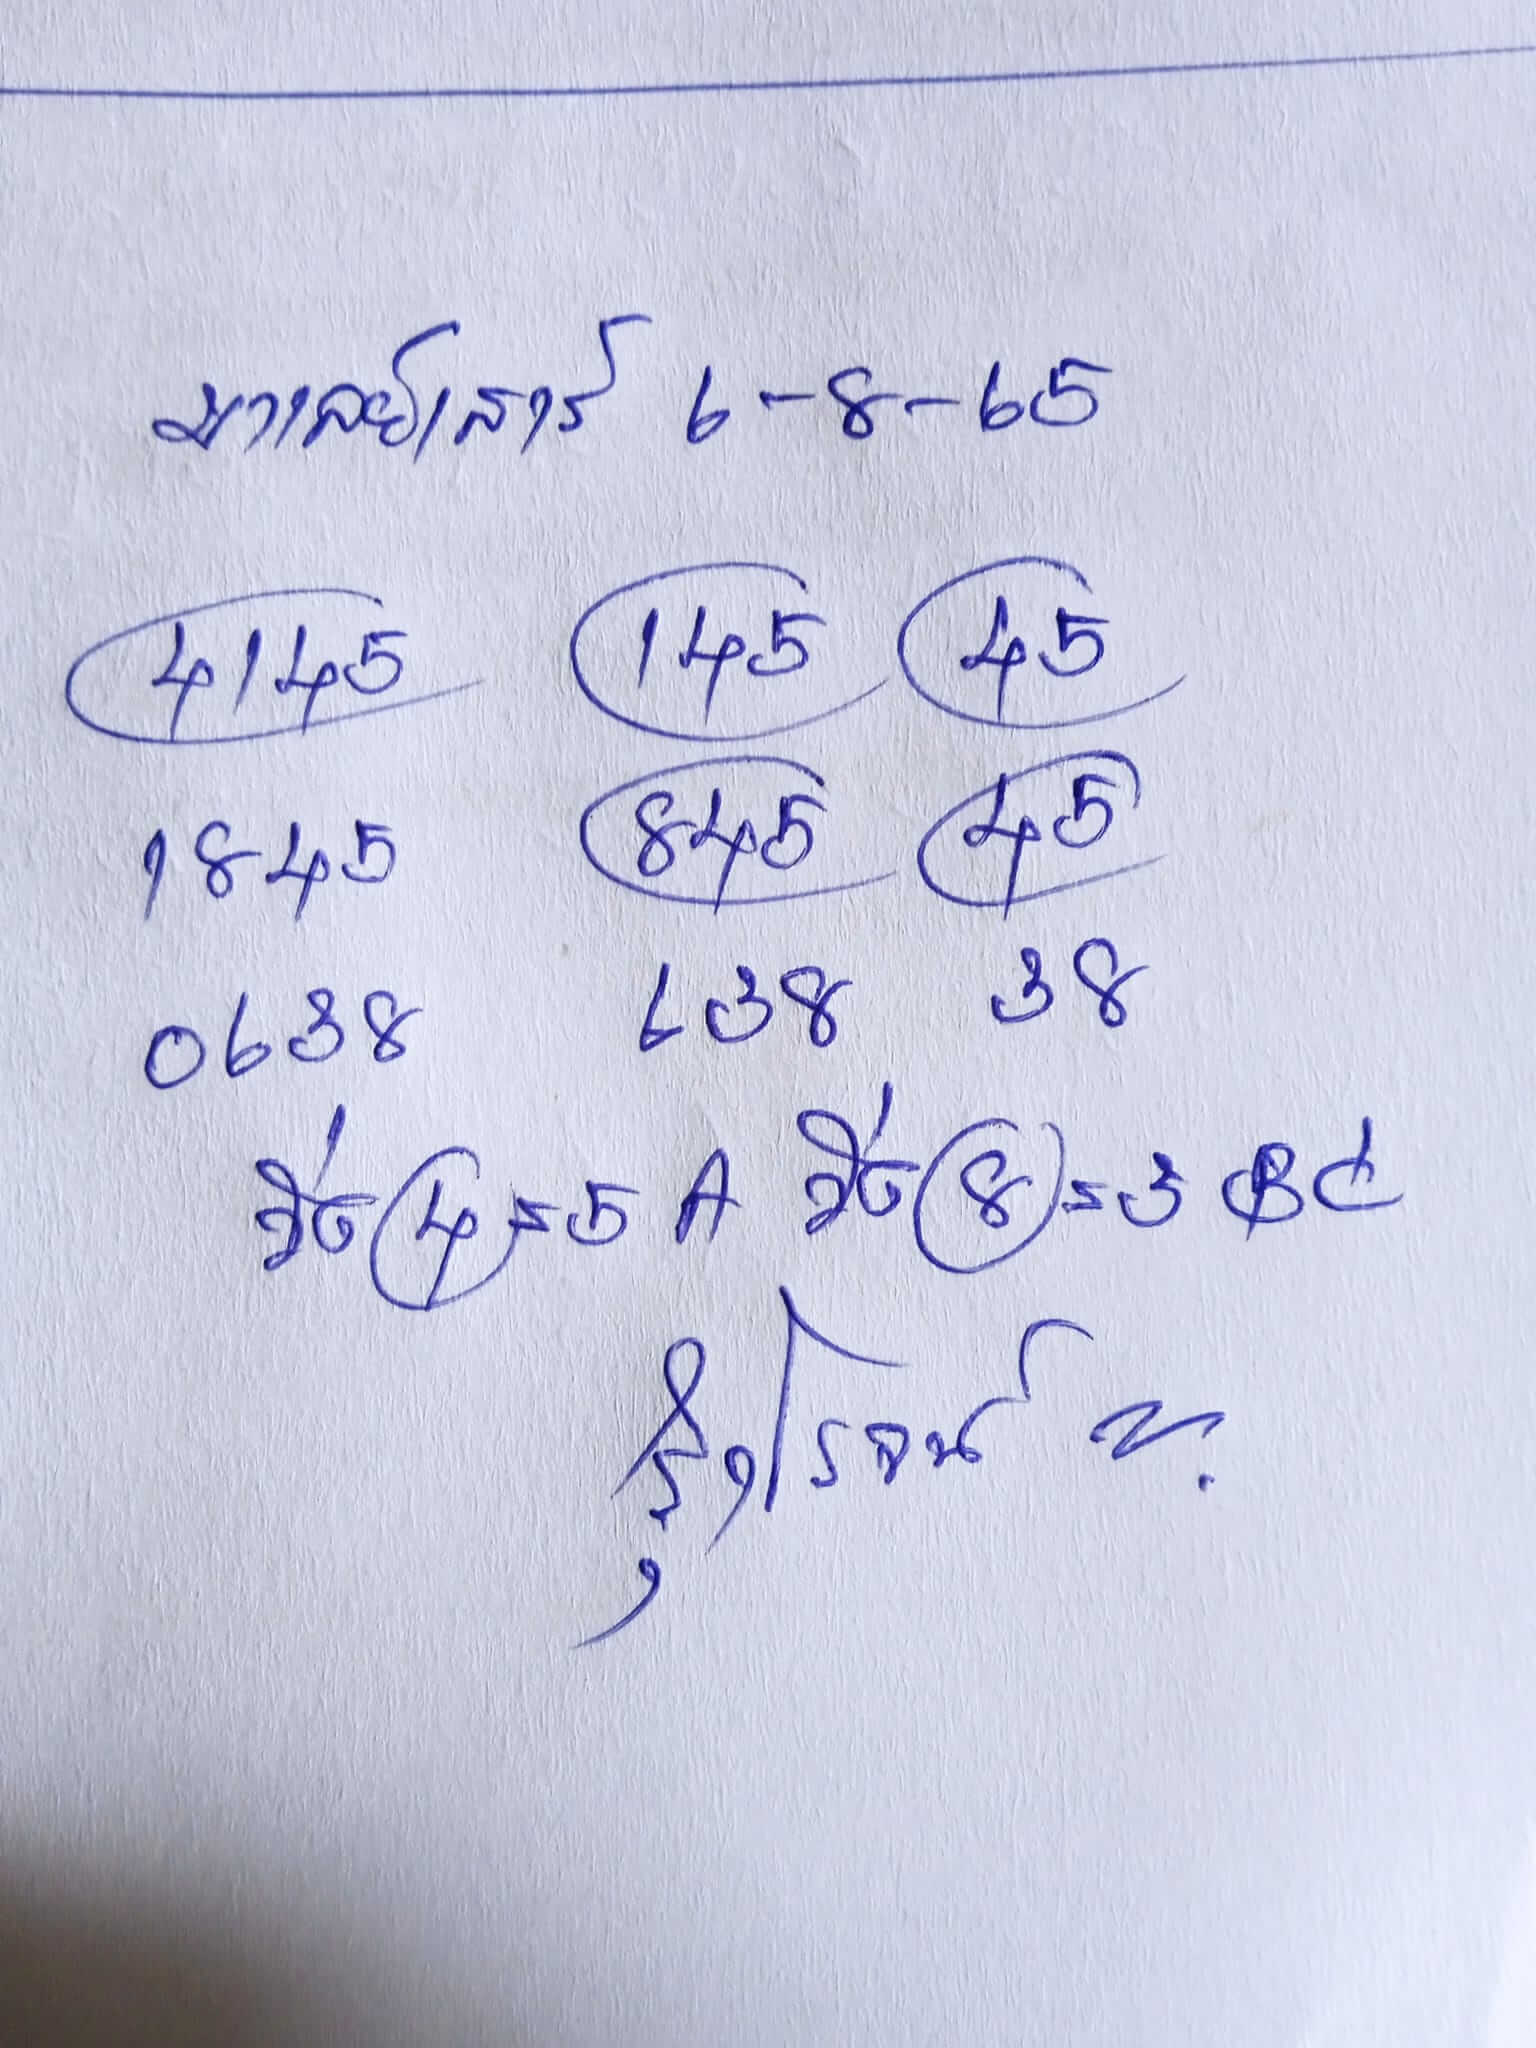 มาเลย์เสาร์ 6-8-65
4145 145 45
1845 845 45
0638 638 38
วิ่ง 4=5 A วิ่ง 8=3 BC
โรจน์ ข.